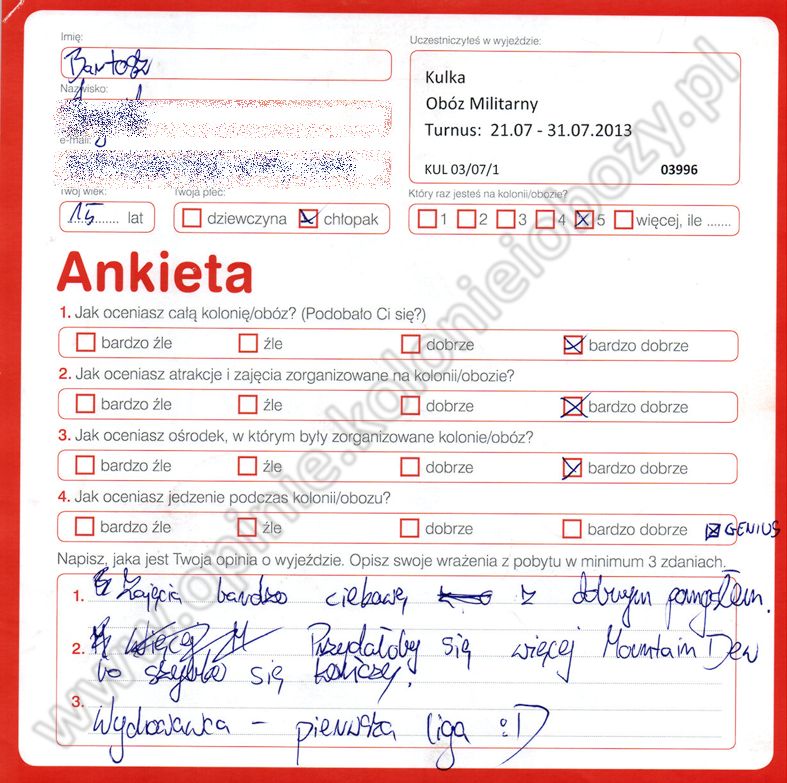 Imię:
Bartosz
Nazwisko:
e-mail:
Twój wiek:
15 lat
Twoja płeć:
dziewczyna chłopak
Uczestniczyłeś w wyjeździe:
Kulka
Obóz Militarny
Turnus: 21.07 - 31.07.2013
KUL 03/07/1 03996
Który raz jesteś na kolonii/obozie?
1 2 3 4 5 więcej, ile .......
Ankieta
1. Jak oceniasz całą kolonię/obóz? (Podobało Ci się?)
bardzo źle źle dobrze bardzo dobrze
2. Jak oceniasz atrakcje i zajęcia zorganizowane na kolonii/obozie?
bardzo źle źle dobrze bardzo dobrze
3. Jak oceniasz ośrodek, w którym były zorganizowane kolonie/obóz?
bardzo źle źle dobrze bardzo dobrze
4. Jak oceniasz jedzenie podczas kolonii/obozu?
bardzo źle źle dobrze bardzo dobrze GENIUS
Napisz, jaka jest Twoja opinia o wyjeździe. Opisz swoje wrażenia z pobytu w minimum 3 zdaniach.
1. Zajęcia bardzo ciekawę z dobrym pomysłem.
2. Przydałoby się więcej Mountain Dew
bo szybko się kończy.
3. Wychowawca - pierwsza liga :D
www.opinie.kolonieiobozy.pl